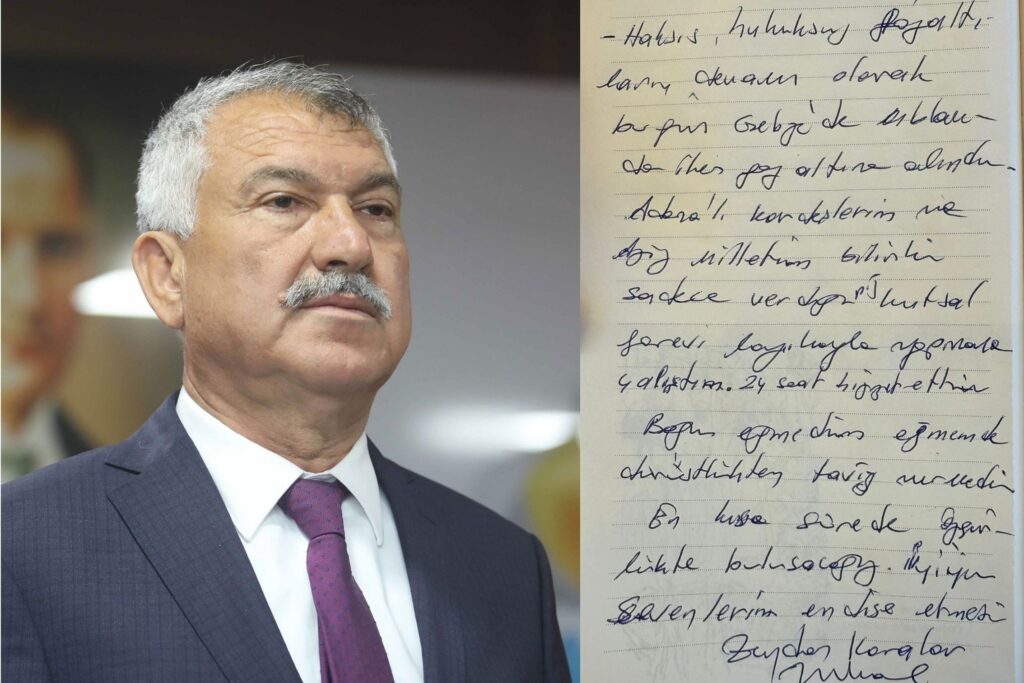 - Haksız, hukuksuz gözaltı-
ların devamı olarak
bugün Gebze'de ablam-
da iken göz altına alındım.
Adana'lı kardeşlerim ve
aziz milletim bilsin ki
sadece verdiğiniz kutsal
görevi layıkıyla yapmaya
çalıştım. 24 saat hizmet ettim
Boyun eğmedim eğmemde
dürüstlükten taviz vermedim
En kısa sürede özgür-
lükte buluşacağız. İyiyim
Sevenlerim endişe etmesin
Zeydan Karalar